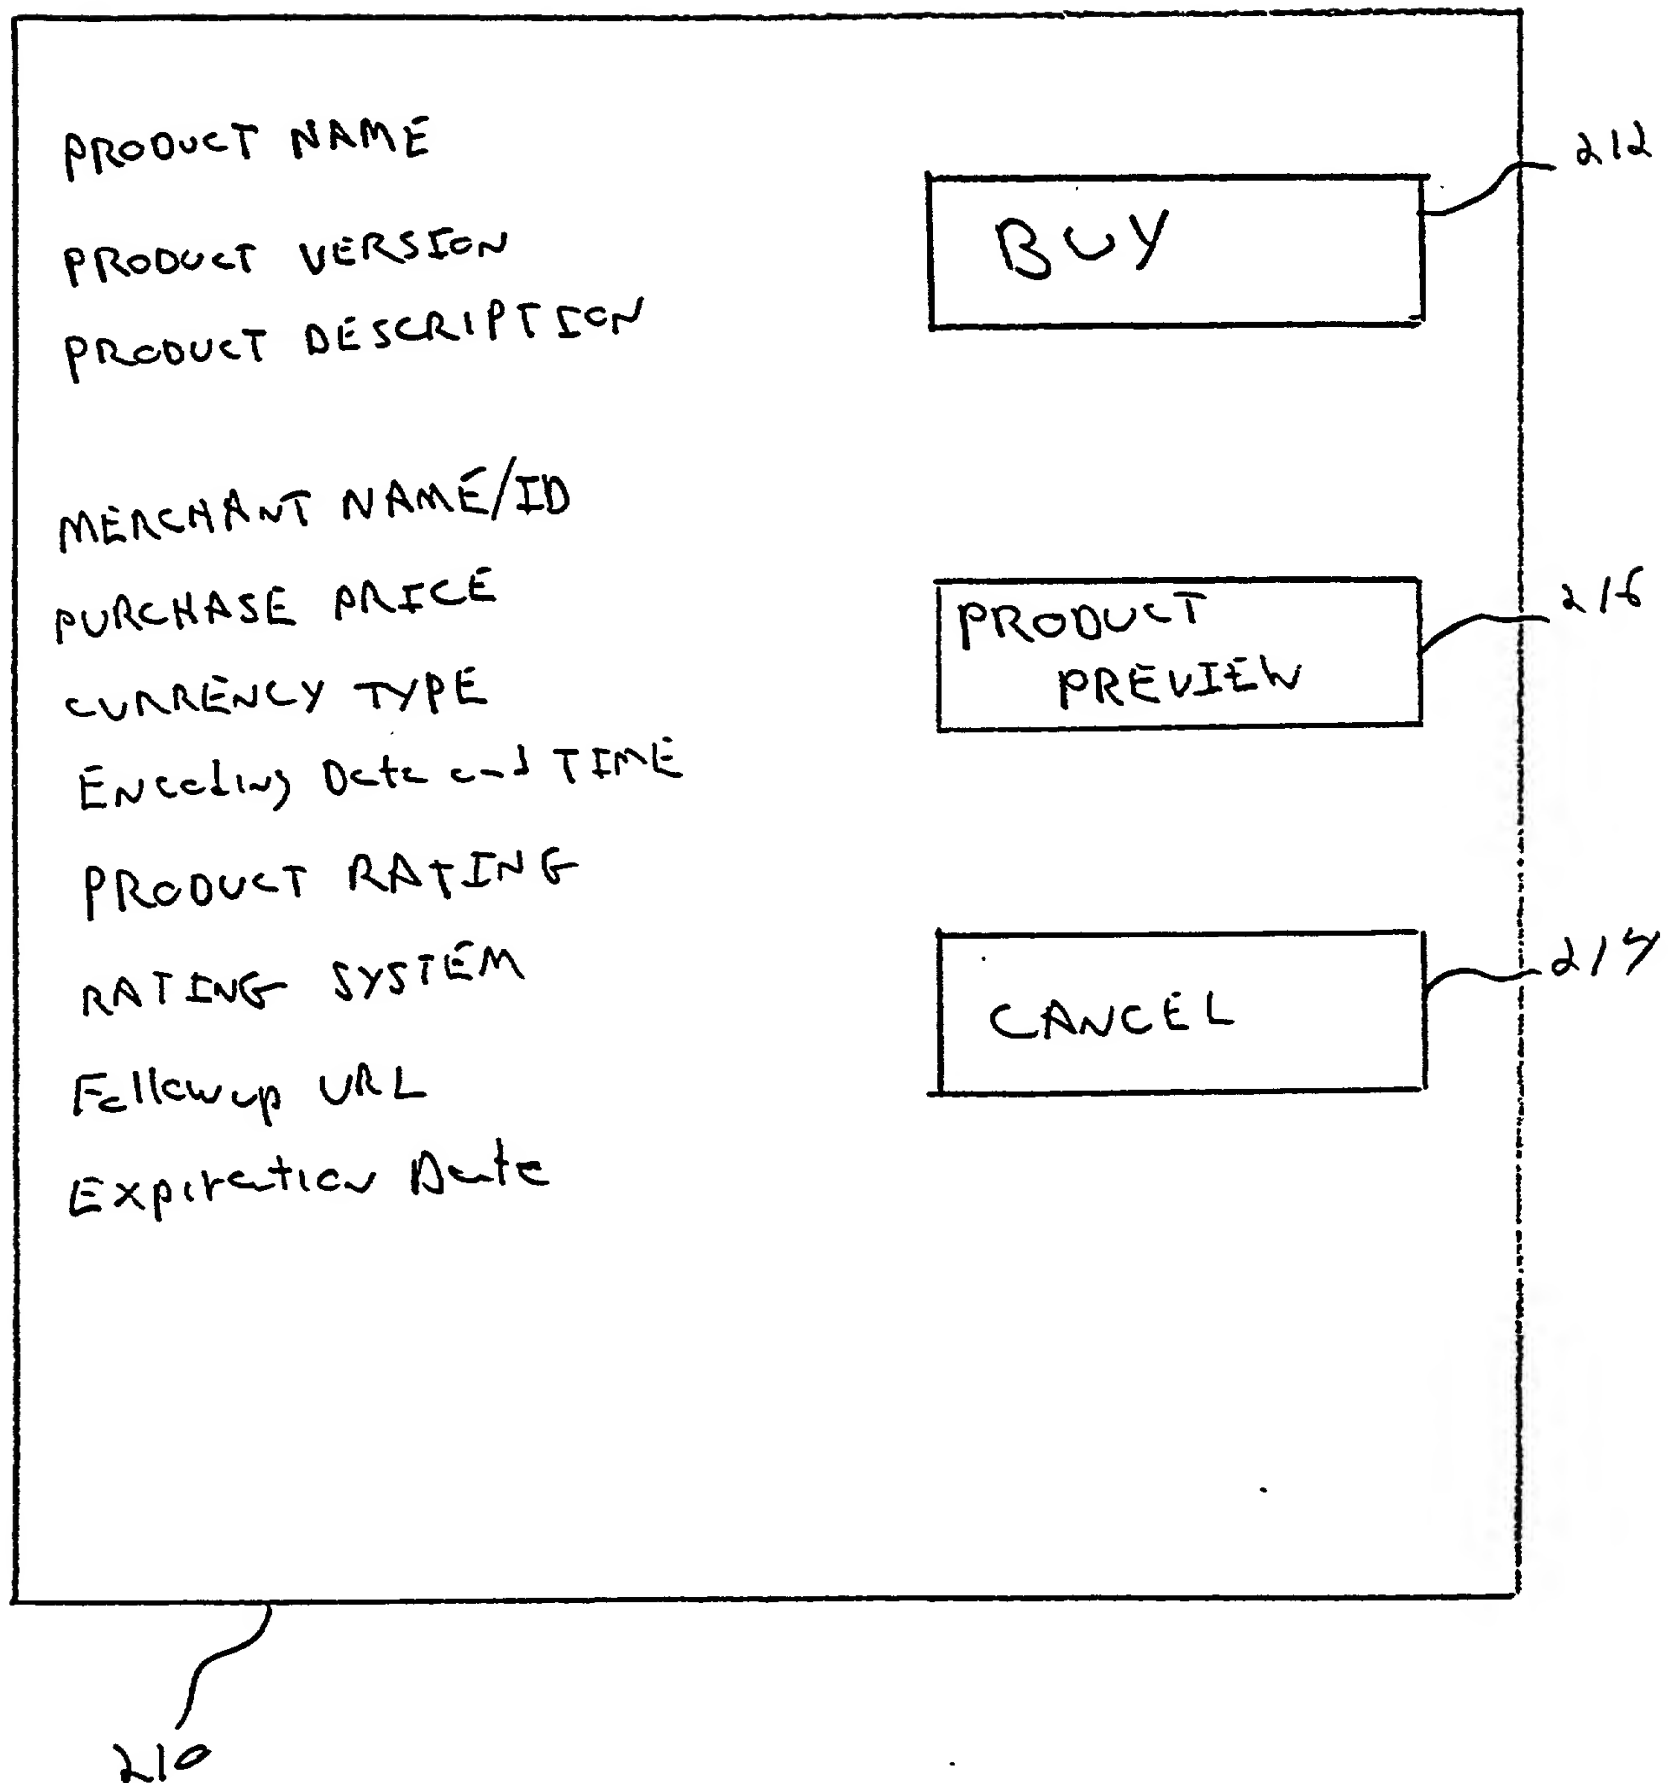 PRODUCT NAME
PRODUCT VERSION
PRODUCT DESCRIPTION
MERCHANT NAME/ID
PURCHASE PRICE
CURRENCY TYPE
Encoding Date and TIME
PRODUCT RATING
RATING SYSTEM
Followup URL
Expiration Date
BUY
212
PRODUCT
PREVIEW
216
CANCEL
214
210